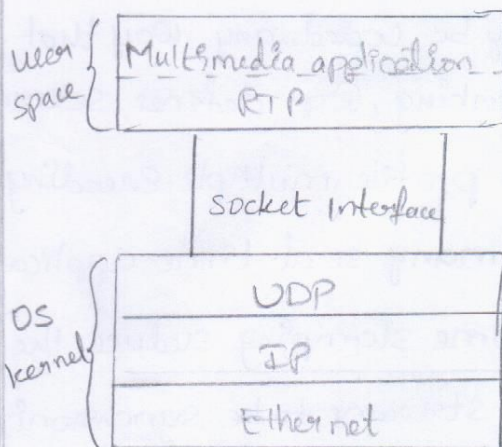 user space
Multimedia application
RTP
Socket Interface
OS kernel
UDP
IP
Ethernet